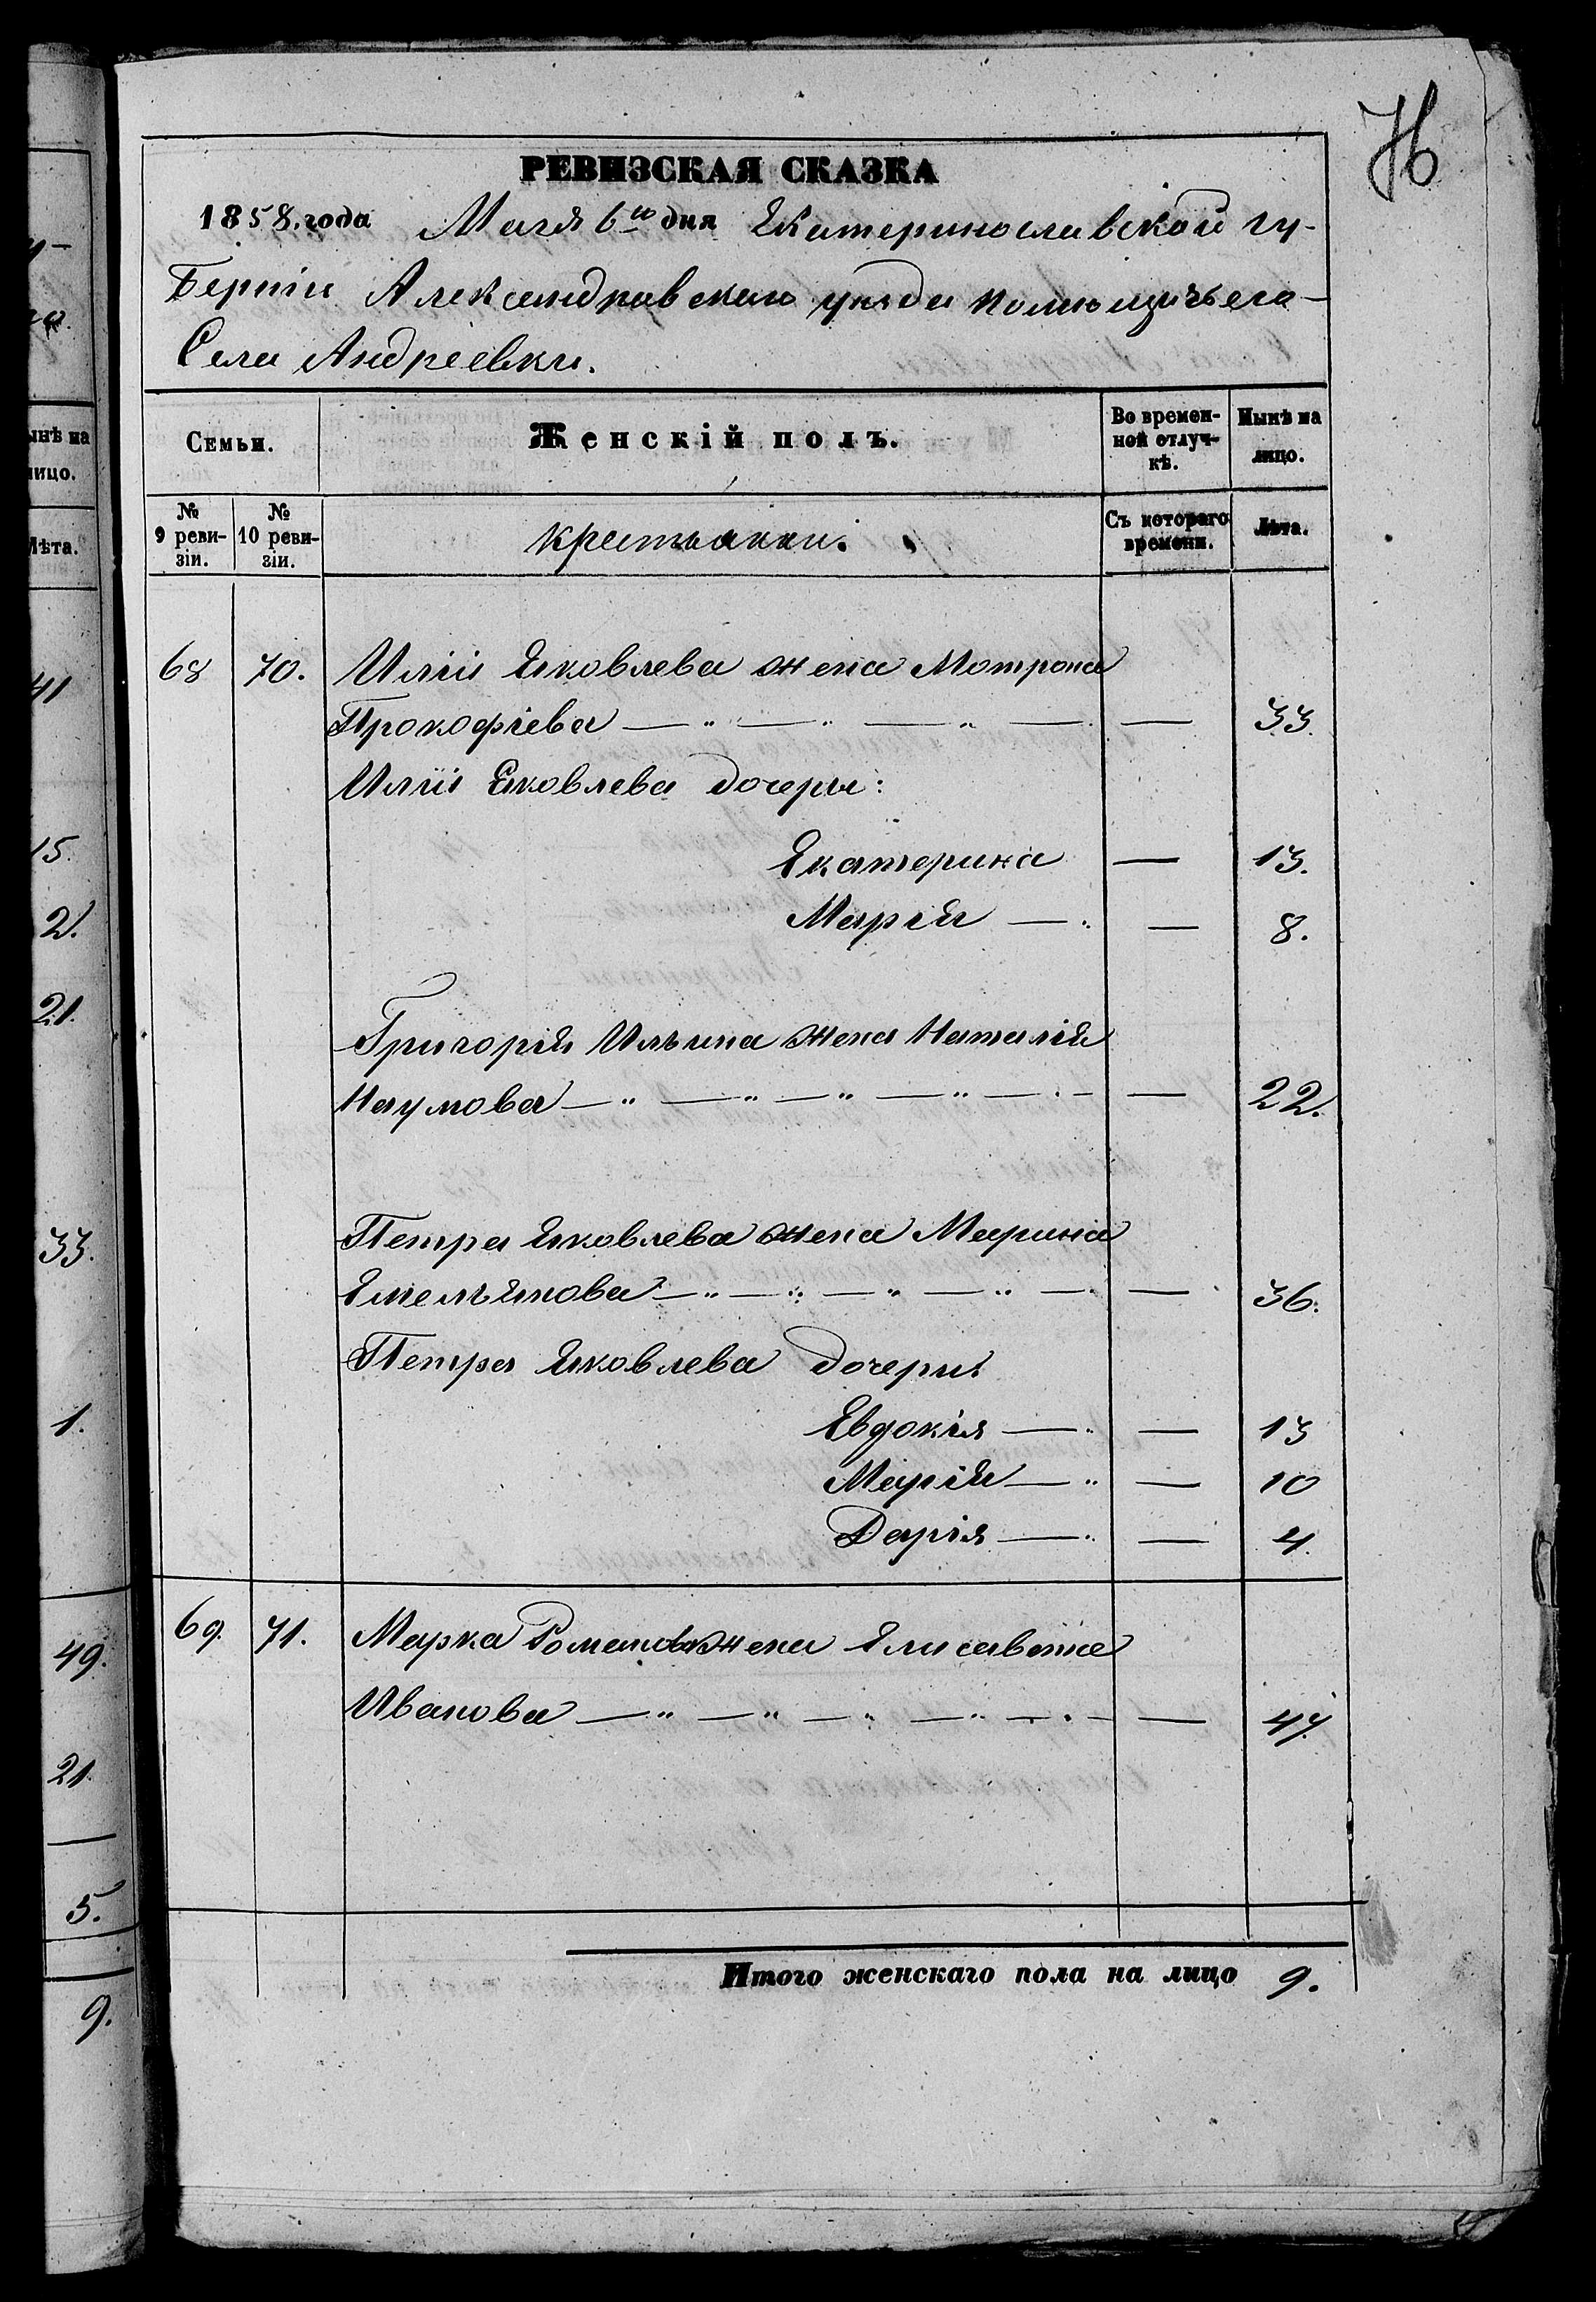 РЕВИЗСКАЯ СКАЗКА
1858. года Мая 6го дня Екатеринославской гу-
берніи Александровскаго уѣзда помѣщичьяго
Села Андріевки.
Семьи.
Женскій полъ.
Во времен-
ной отлуч-
кѣ.
Нынѣ на
лицо.
№
9 реви-
зіи.
№
10 реви-
зіи.
крестьянки.
Съ котораго
времени.
Лѣта.
68 70. Иліи Яковлева жена Мотрона
Прокофіева — 33.
Иліи Яковлева дочери:
Екатерина — 13.
Марія — 8.
Григорія Ильина жена Наталія
Наумова — 22.
Петра Яковлева жена Марина
Емельянова — 36.
Петра Яковлева дочери:
Евдокія — 13
Марія — 10
Дарія — 4.
69. 71. Марка Романова жена Елисавета
Иванова — 47.
Итого женскаго пола на лицо 9.
ынѣ на
лицо.
Лѣта.
41
15.
2.
21.
33.
1.
49.
21.
5.
9.